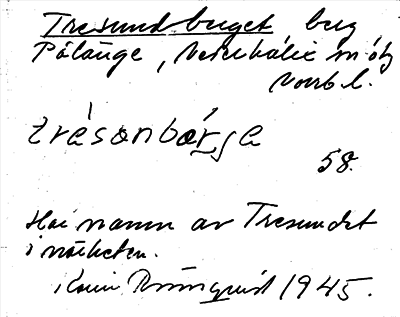 Tresundberget berg
Pålänge, Nederkalix
Norrb. l.
trásonbárja
58.
Har namn av Tresundet
i närheten.
Karin 1945.